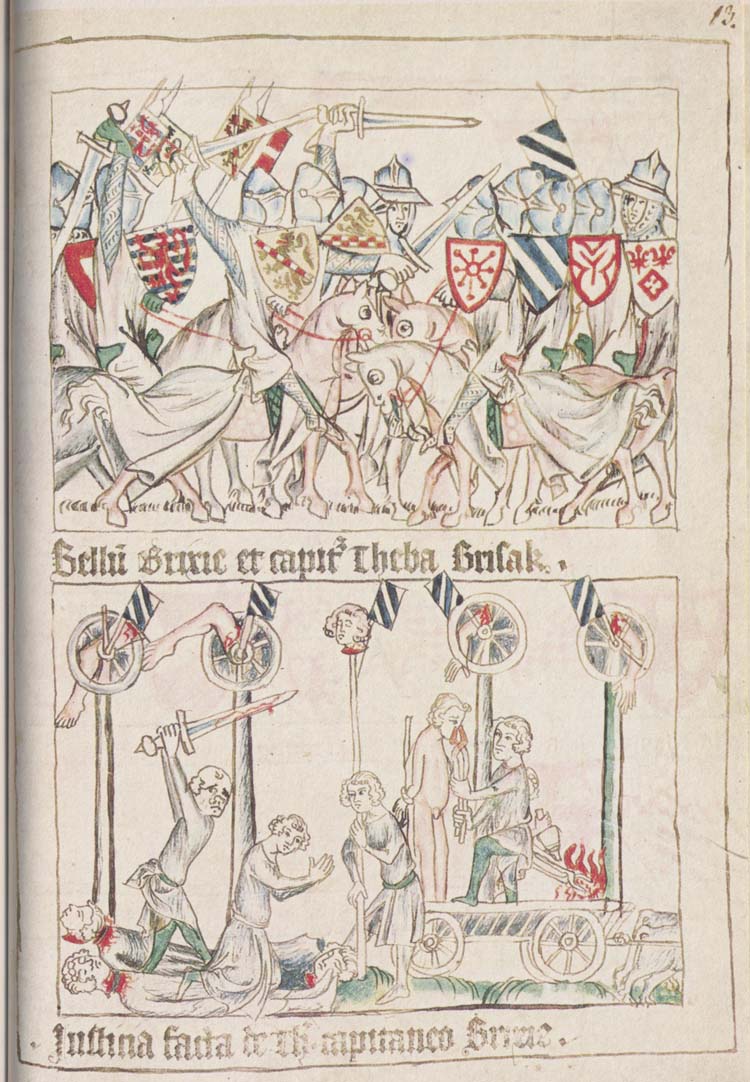 13.
Bellū Brixie et capit᷑ Theba Brisak.
Justitia facta de Th. capitaneo Brixie.